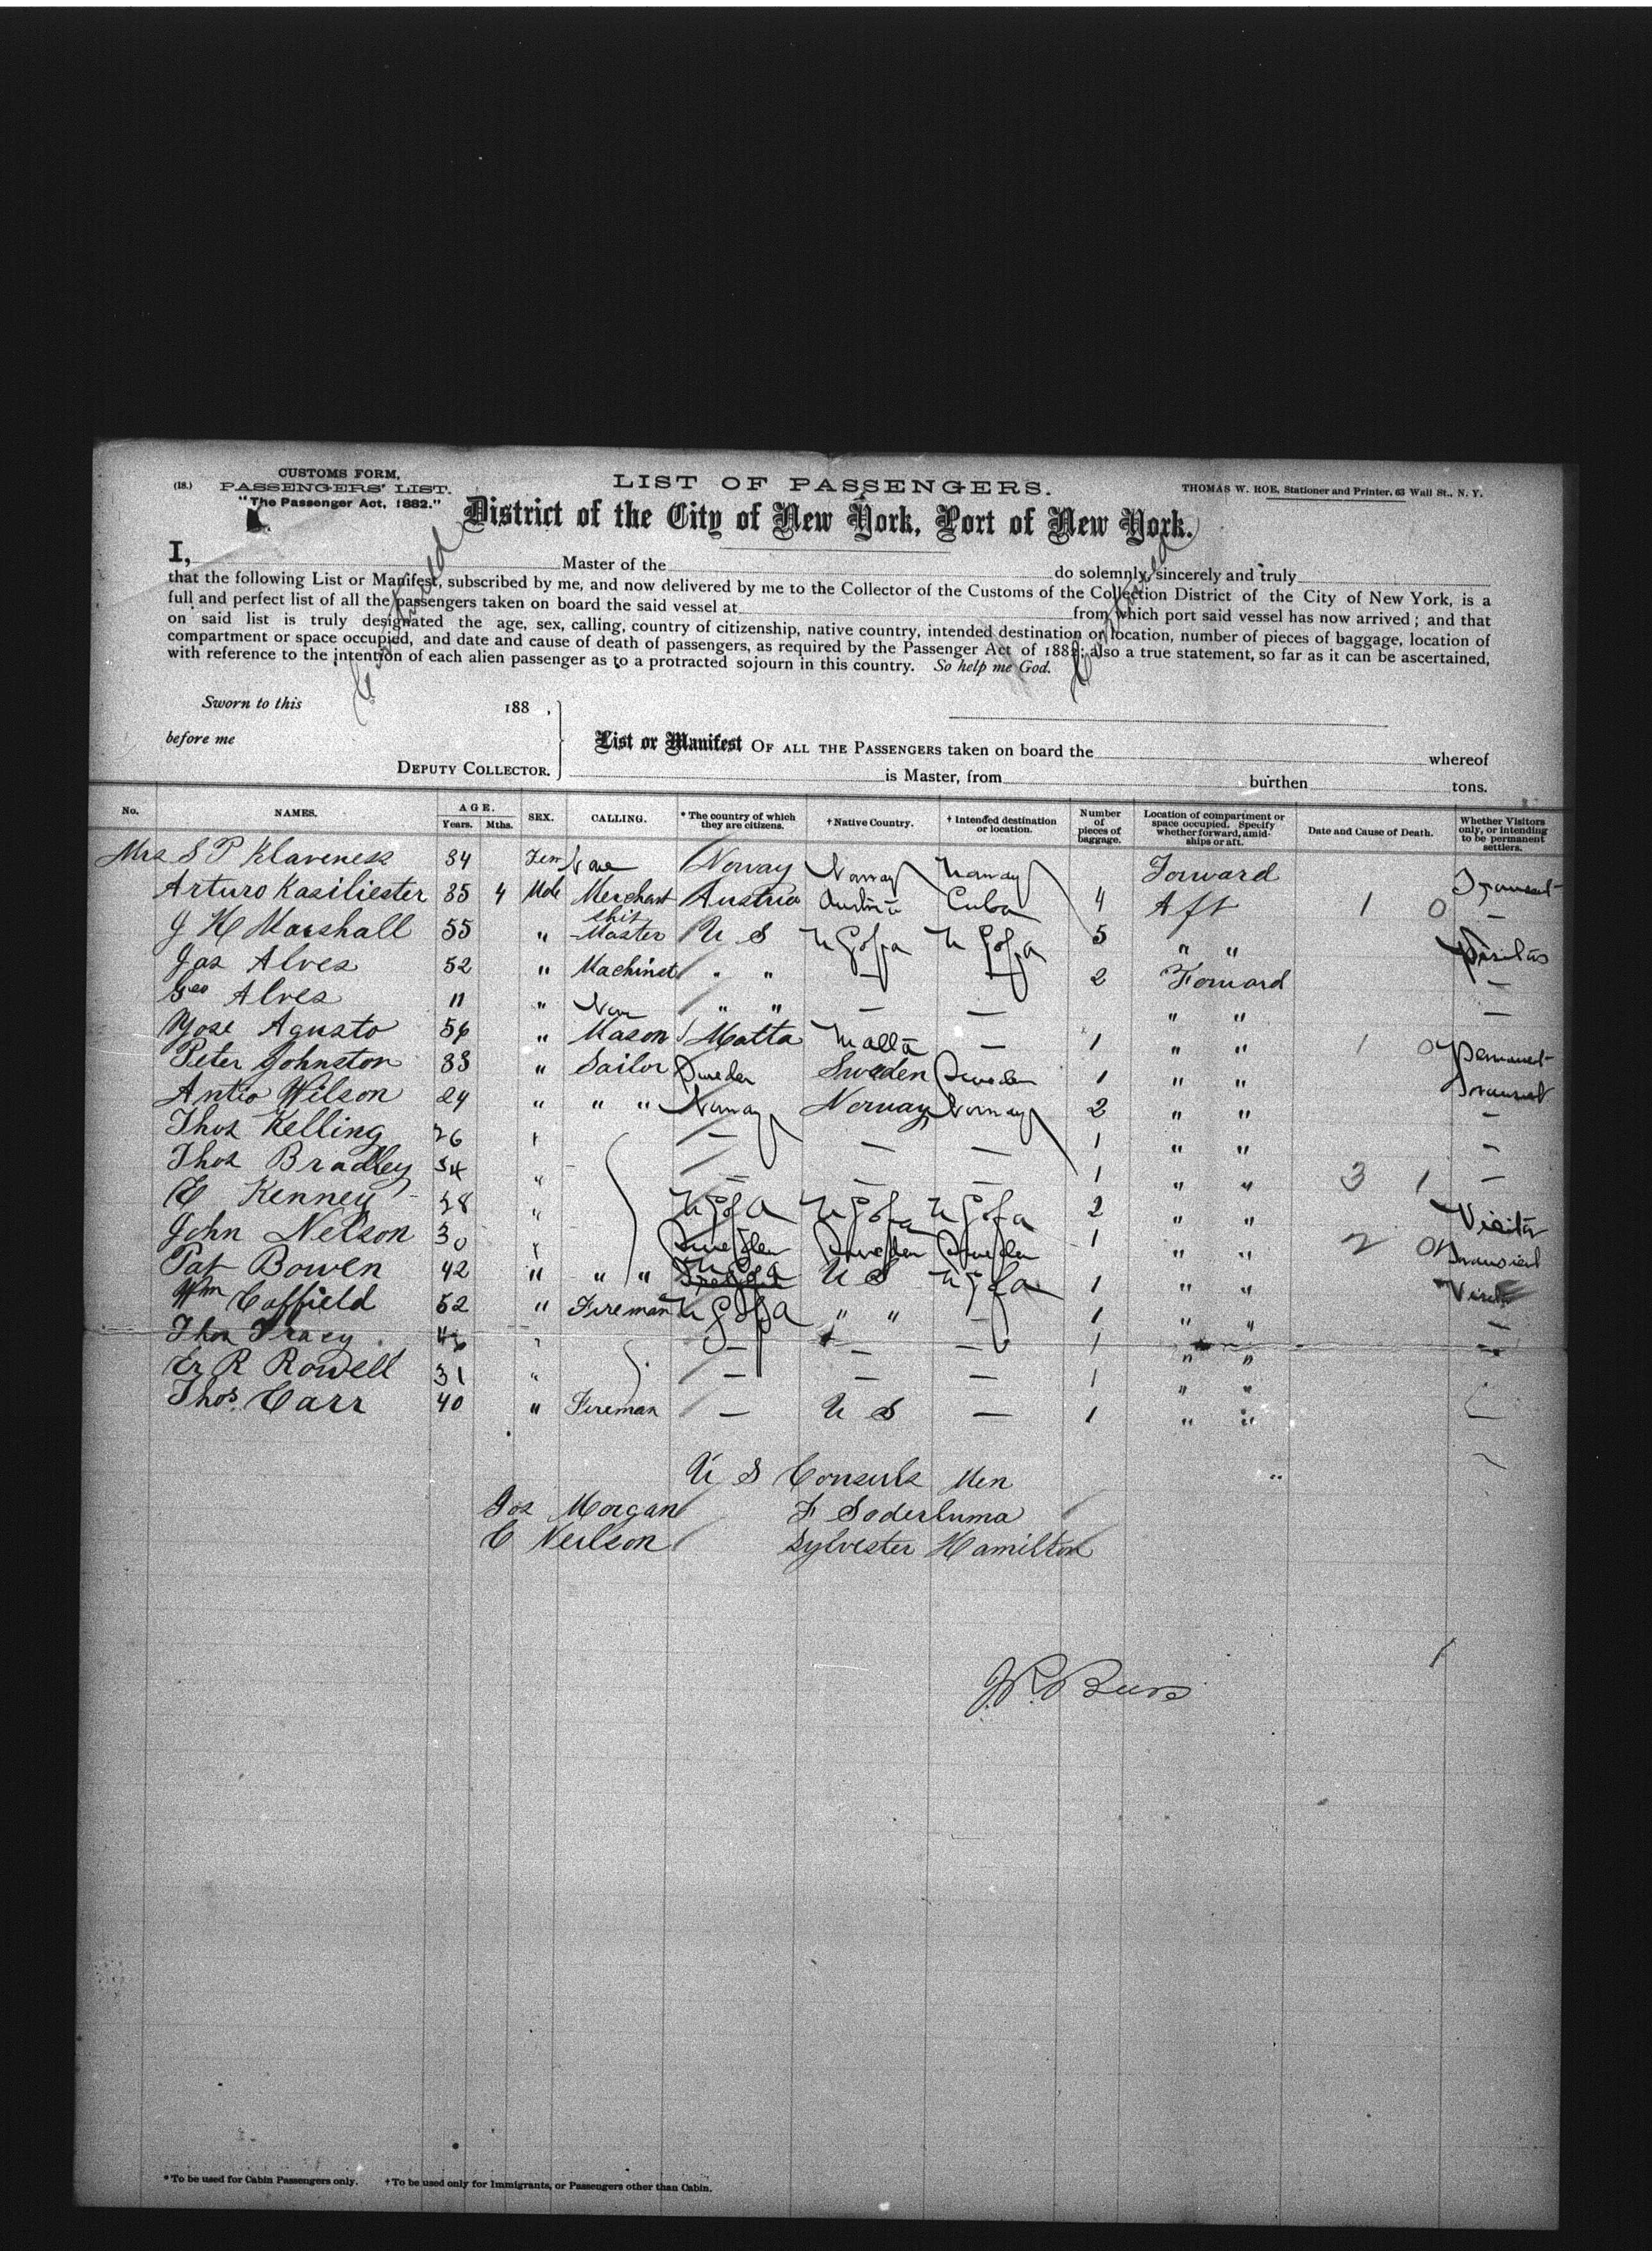 CUSTOMS FORM,
(18.) PASSENGERS' LIST.
"The Passenger Act, 1882."
LIST OF PASSENGERS.
THOMAS W. ROE, Stationer and Printer, 63 Wall St., N. Y.
District of the City of New York, Port of New York.
I, Master of the do solemnly, sincerely and truly
that the following List or Manifest, subscribed by me, and now delivered by me to the Collector of the Customs of the Collection District of the City of New York, is a
full and perfect list of all the passengers taken on board the said vessel at from which port said vessel has now arrived; and that
on said list is truly designated the age, sex, calling, country of citizenship, native country, intended destination or location, number of pieces of baggage, location of
compartment or space occupied, and date and cause of death of passengers, as required by the Passenger Act of 1882; also a true statement, so far as it can be ascertained,
with reference to the intention of each alien passenger as to a protracted sojourn in this country. So help me God.
Sworn to this 188 ,
before me
DEPUTY COLLECTOR.
List or Manifest OF ALL THE PASSENGERS taken on board the whereof
is Master, from burthen tons.
No. NAMES. AGE. Years. Mths. SEX. CALLING. * The country of which they are citizens. † Native Country. † Intended destination or location. Number of pieces of baggage. Location of compartment or space occupied. Specify whether forward, amidships or aft. Date and Cause of Death. Whether Visitors only, or intending to be permanent settlers.
Mrs S P Klaveness 34 Fem Norway Norway Norway Forward
Arturo Kasiliester 35 4 Male Merchant Austria Austria Cuba 4 Aft 1 0
J H Marshall 55 " Ship Master U S U S of a U S of a 5 " "
Jas Alves 52 " Machinst " " — — 2 Forward —
Geo Alves 11 " " " — — " " —
Jose Agusto 56 " Mason Malta Malta — 1 " " 1 0
Peter Johnston 33 " Sailor Sweden Sweden Sweden 1 " "
Antio Wilson 24 " " " Norway Norway Norway 2 " " —
Thos Kelling 26 " — — — 1 " " —
Thos Bradley 34 " — — — 1 " " 3 1 —
E Kenney 28 " U S of A U S of a U S of a 2 " "
John Nelson 30 " Sweden Sweden Sweden 1 " " 2 0
Pat Bowen 42 " " " U S U S of a 1 " "
Wm Coffield 52 " Fireman U S of a " " — 1 " " —
Thos Tracy " — — — 1 " " —
R Rowell 31 " — — — 1 " "
Thos. Carr 40 " Fireman — U S — 1 " "
U S Consuls Men
Jos Morgan F Soderluma
C Neilson Sylvester Hamilton
* To be used for Cabin Passengers only. † To be used only for Immigrants, or Passengers other than Cabin.